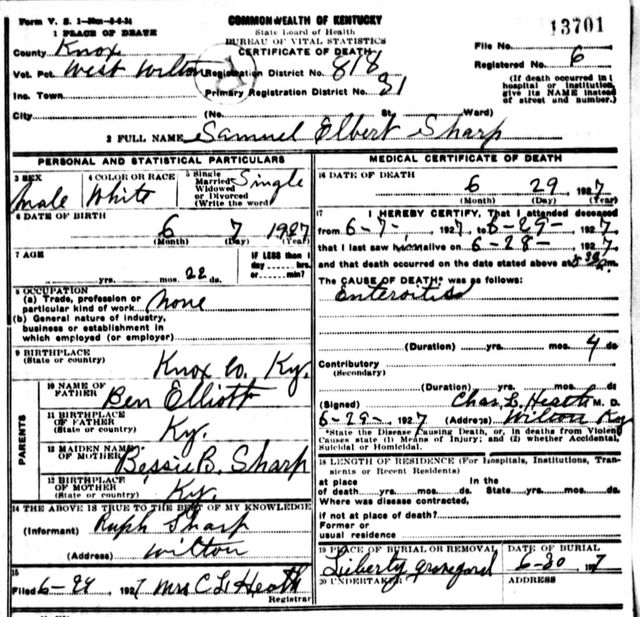 Form V. S. 1-50m-5-6-24
COMMONWEALTH OF KENTUCKY
1 PLACE OF DEATH
State Board of Health
BUREAU OF VITAL STATISTICS
CERTIFICATE OF DEATH
13701
File No.
County Knox
Registered No. 6
Vot. Pct. West Wilton Registration District No. 818
(If death occurred in a hospital or institution, give its NAME instead of street and number.)
Inc. Town Primary Registration District No. 81
City (No. St. Ward)
2 FULL NAME Samuel Elbert Sharp
PERSONAL AND STATISTICAL PARTICULARS
3 SEX Male
4 COLOR OR RACE White
5 Single Married Widowed or Divorced (Write the word) Single
6 DATE OF BIRTH
6 7 1927
(Month) (Day) (Year)
7 AGE
yrs. mos. 22 ds.
IF LESS than 1 day hrs. or min.?
8 OCCUPATION
(a) Trade, profession or particular kind of work None
(b) General nature of industry, business or establishment in which employed (or employer)
9 BIRTHPLACE
(State or country) Knox Co. Ky.
PARENTS
10 NAME OF FATHER Ben Elliott
11 BIRTHPLACE OF FATHER (State or country) Ky.
12 MAIDEN NAME OF MOTHER Bessie B. Sharp
13 BIRTHPLACE OF MOTHER (State or country) Ky.
14 THE ABOVE IS TRUE TO THE BEST OF MY KNOWLEDGE
(Informant) Ruph Sharp
(Address) Wilton
15
Filed 6-29, 1927 Mrs C L Heath
Registrar
MEDICAL CERTIFICATE OF DEATH
16 DATE OF DEATH
6 29, 1927
(Month) (Day) (Year)
17 I HEREBY CERTIFY, That I attended deceased
from 6-7-, 1927, to 6-29-, 1927
that I last saw him alive on 6-28-, 1927
and that death occurred on the date stated above at m.
The CAUSE OF DEATH* was as follows:
Enteroitis
(Duration) yrs. mos. 4 ds.
Contributory
(Secondary)
(Duration) yrs. mos. ds.
(Signed) Chas. L. Heath M. D.
6-29-, 1927 (Address) Wilton Ky
*State the Disease Causing Death, or, in deaths from Violent Causes state (1) Means of Injury; and (2) whether Accidental, Suicidal or Homicidal.
18 LENGTH OF RESIDENCE (For Hospitals, Institutions, Transients or Recent Residents)
at place of death yrs. mos. ds. In the State yrs. mos. ds.
Where was disease contracted,
if not at place of death?
Former or usual residence
19 PLACE OF BURIAL OR REMOVAL
Liberty graveyard
DATE OF BURIAL
6-30, 1927
20 UNDERTAKER
ADDRESS